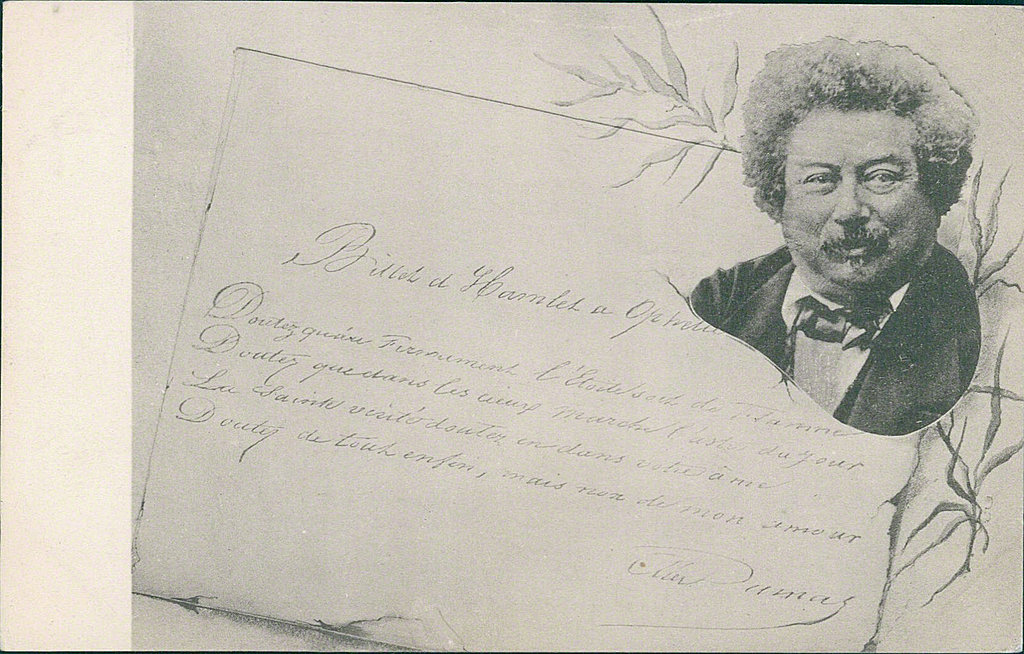 Billet d Hamlet a Ophelie
Doutez qu'au Firmament l'Etoile soit de flamme
Doutez que dans les cieux marche l'astre du jour
La Sainte verité doutez en dans votre âme
Doutez de tout enfin, mais non de mon amour
Alex Dumas